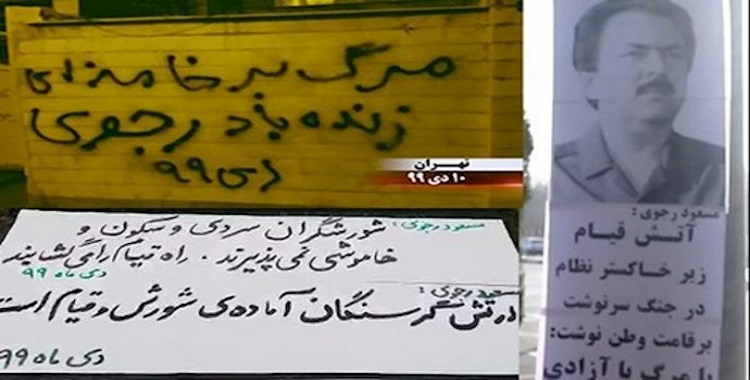 مرگ بر خامنه‌ای
زنده باد رجوی
دی ۹۹
تهران
۱۰ دی ۹۹
مسعود رجوی: شورشگران سردی و سکون و
خاموشی نمی پذیرند. راه قیام را می گشایند
دی ماه ۹۹
مسعود رجوی:
ارتش گرسنگان آماده‌ی شورش و قیام است
دی ماه ۹۹
مسعود رجوی:
آتش قیام
زیر خاکستر نظام
در جنگ سرنوشت
برقامت وطن نوشت:
یا مرگ یا آزادی